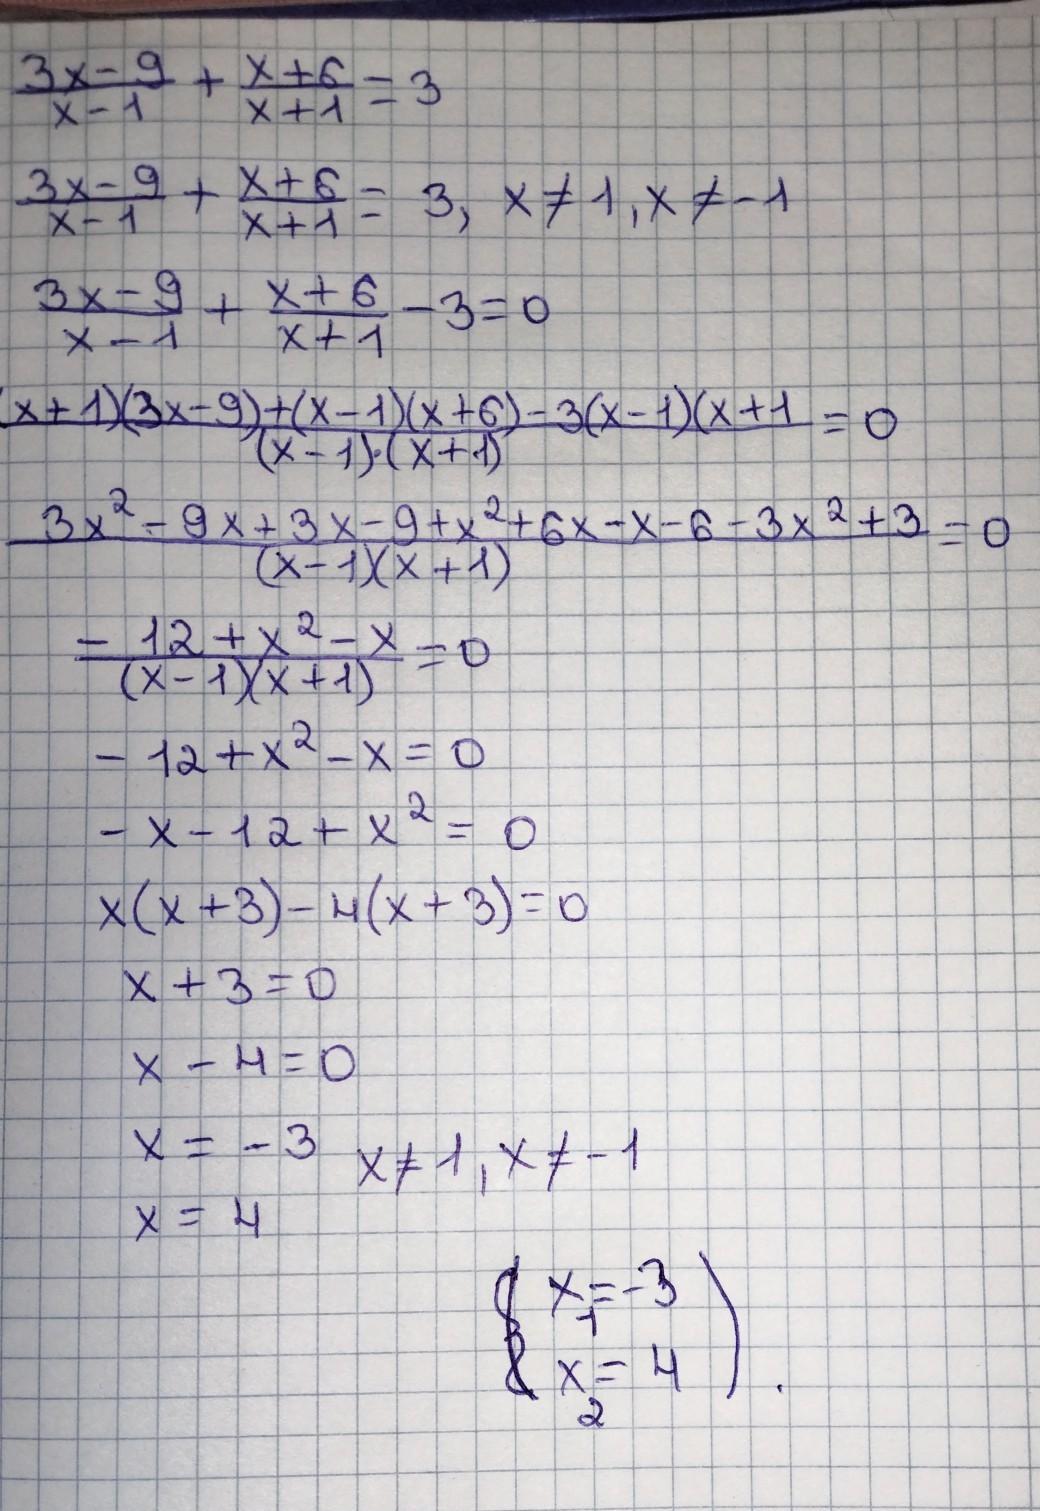 (3x-9)/(x-1) + (x+6)/(x+1) = 3
(3x-9)/(x-1) + (x+6)/(x+1) = 3, x ≠ 1, x ≠ -1
(3x-9)/(x-1) + (x+6)/(x+1) - 3 = 0
((x+1)(3x-9)+(x-1)(x+6)-3(x-1)(x+1)/((x-1)·(x+1)) = 0
(3x² - 9x + 3x - 9 + x² + 6x - x - 6 - 3x² + 3)/((x-1)(x+1)) = 0
(-12 + x² - x)/((x-1)(x+1)) = 0
-12 + x² - x = 0
-x - 12 + x² = 0
x(x+3) - 4(x+3) = 0
x + 3 = 0
x - 4 = 0
x = -3 x ≠ 1, x ≠ -1
x = 4
{ x₁ = -3
x₂ = 4 ).